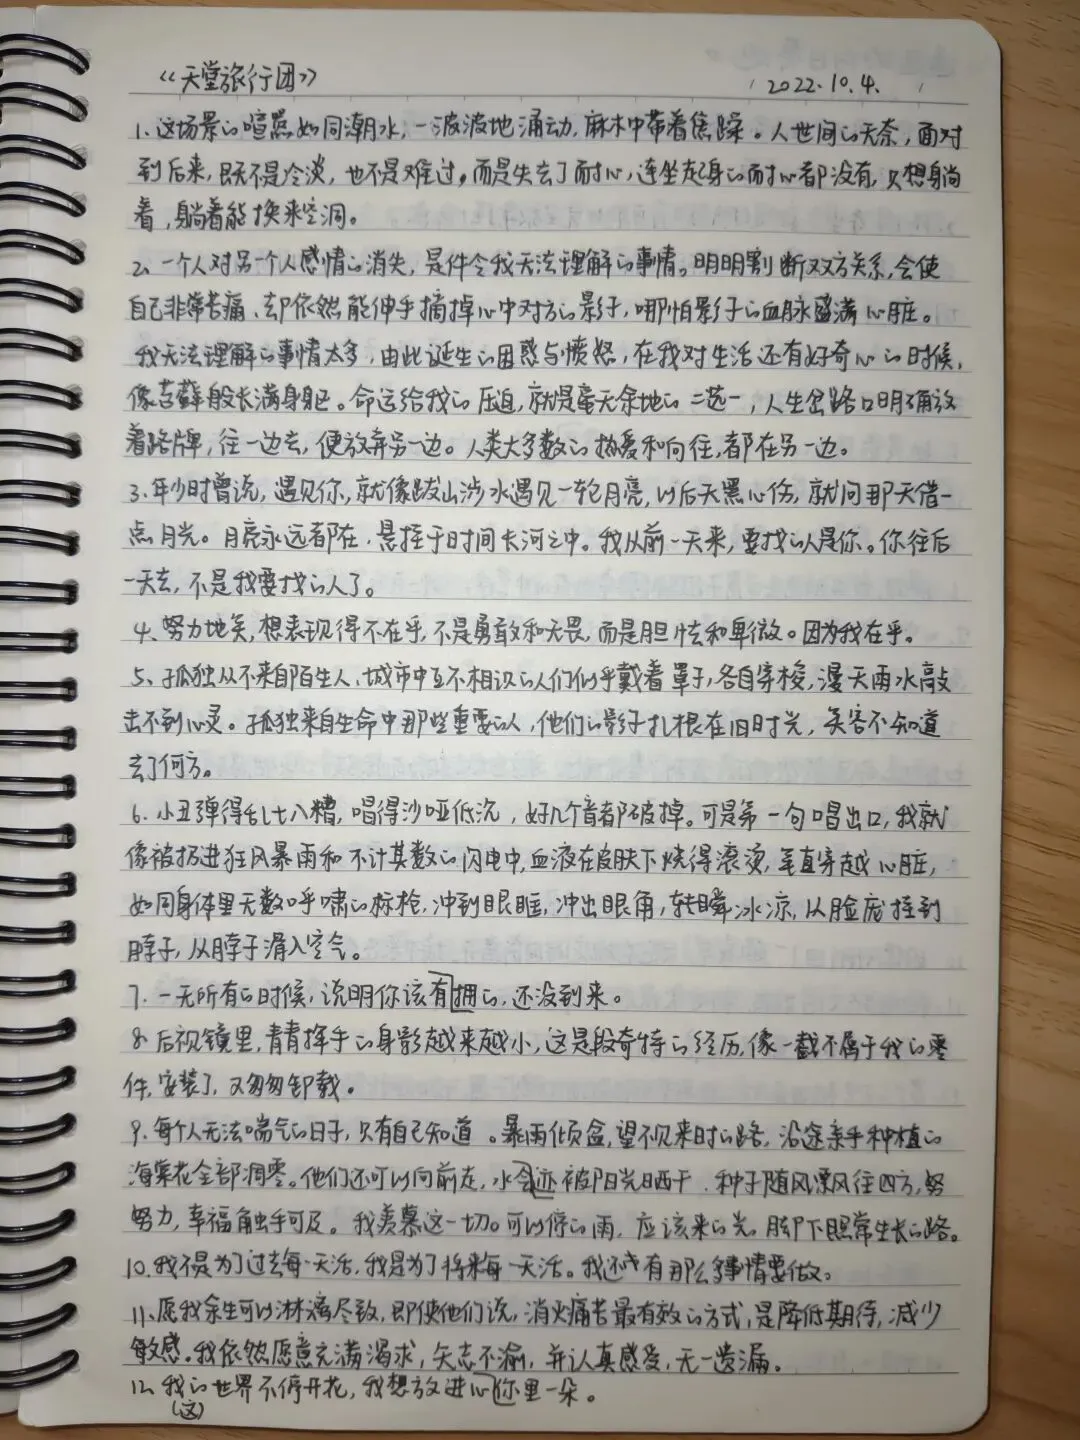 《天堂旅行团》 2022.10.4.
1.这场景的喧嚣如同潮水,一波波地涌动,麻木中带着焦躁。人世间的无奈,面对
到后来,既不是冷淡,也不是难过。而是失去了耐心,连坐起身的耐心都没有,只想躺
着,躺着能换来空洞。
2、一个人对另一个人感情的消失,是件令我无法理解的事情。明明割断双方关系,会使
自己非常苦痛、却依然能伸手摘掉心中对方的影子,哪怕影子的血脉盛满心脏。
我无法理解的事情太多,由此诞生的困惑与愤怒,在我对生活还有好奇心的时候,
像苔藓般长满身躯。命运给我的压迫,就是毫无余地的二选一,人生岔路口明确放
着路牌,往一边去,便放弃另一边。人类大多数的热爱和向往,都在另一边。
3.年少时曾说,遇见你,就像跋山涉水遇见一轮月亮,以后天黑心伤,就问那天借一
点月光。月亮永远都在,悬挂于时间长河之中。我从前一天来,要找的人是你。你往后
一天去,不是我要找的人了。
4、努力地笑,想表现得不在乎,不是勇敢和无畏,而是胆怯和卑微。因为我在乎。
5、孤独从不来自陌生人、城市中互不相识的人们似乎戴着罩子,各自穿梭,漫天雨水敲
击不到心灵。孤独来自生命中那些重要的人,他们的影子扎根在旧时光,笑容不知道
去了何方。
6.小丑弹得乱七八糟,唱得沙哑低沉,好几个音都破掉。可是第一句唱出口,我就
像被扔进狂风暴雨和不计其数的闪电中,血液在皮肤下烧得滚烫,笔直穿越心脏,
如同身体里无数呼啸的标枪,冲到眼眶,冲出眼角,转瞬冰凉,从脸庞挂到
脖子,从脖子滑入空气。
7.一无所有的时候,说明你该有拥的,还没到来。
8.后视镜里,青青挥手的身影越来越小,这是段奇特的经历,像一截不属于我的零
件,安装了,又匆匆卸载。
9、每个人无法喘气的日子,只有自己知道。暴雨倾盆,望不见来时的路,沿途亲手种植的
海棠花全部凋零。他们还可以向前走,水会迹被阳光晒干.种子随风漂风往四方,努
努力,幸福触手可及。我羡慕这一切。可以停的雨,应该来的光,脚下照常生长的路。
10.我不是为了过去每一天活,我是为了将来每一天活。我还有那么多事情要做。
11、愿我余生可以淋漓尽致,即使他们说,消灭痛苦最有效的方式,是降低期待,减少
敏感。我依然愿意充满渴求,矢志不渝,并认真感受,无一遗漏。
12、我的世界不停开花,我想放进心你里一朵。
(这)